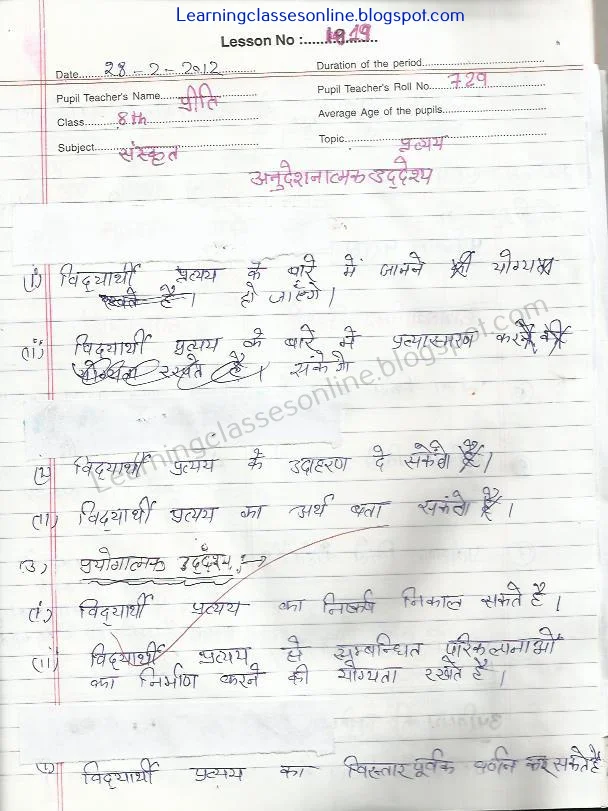 Learningclassesonline.blogspot.com
Lesson No :......19.........
Date........28-2-2012
Duration of the period........
Pupil Teacher's Name........प्रीति
Pupil Teacher's Roll No........729
Class........8th
Average Age of the pupils........
Subject........संस्कृत
Topic........प्रत्यय
अनुदेशनात्मक उद्देश्य
(i) विद्यार्थी प्रत्यय के बारे में जानने योग्य
रखते है। हो जाएंगे।
(ii) विद्यार्थी प्रत्यय के बारे में प्रत्यास्मरण कर
योग्यता रखते है। सकेंगे
Learningclassesonline.blogspot.com
विद्यार्थी प्रत्यय के उदाहरण दे सकेंगे है।
(ii) विद्यार्थी प्रत्यय का अर्थ बता सकेंगे है।
3) प्रयोगात्मक उद्देश्य :→
(i) विद्यार्थी प्रत्यय का निष्कर्ष निकाल सकते है।
(ii) विद्यार्थी प्रत्यय से सम्बन्धित परिकल्पनाओं
का निर्माण करने की योग्यता रखते है।
विद्यार्थी प्रत्यय का विस्तारपूर्वक वर्णन कर सकते है